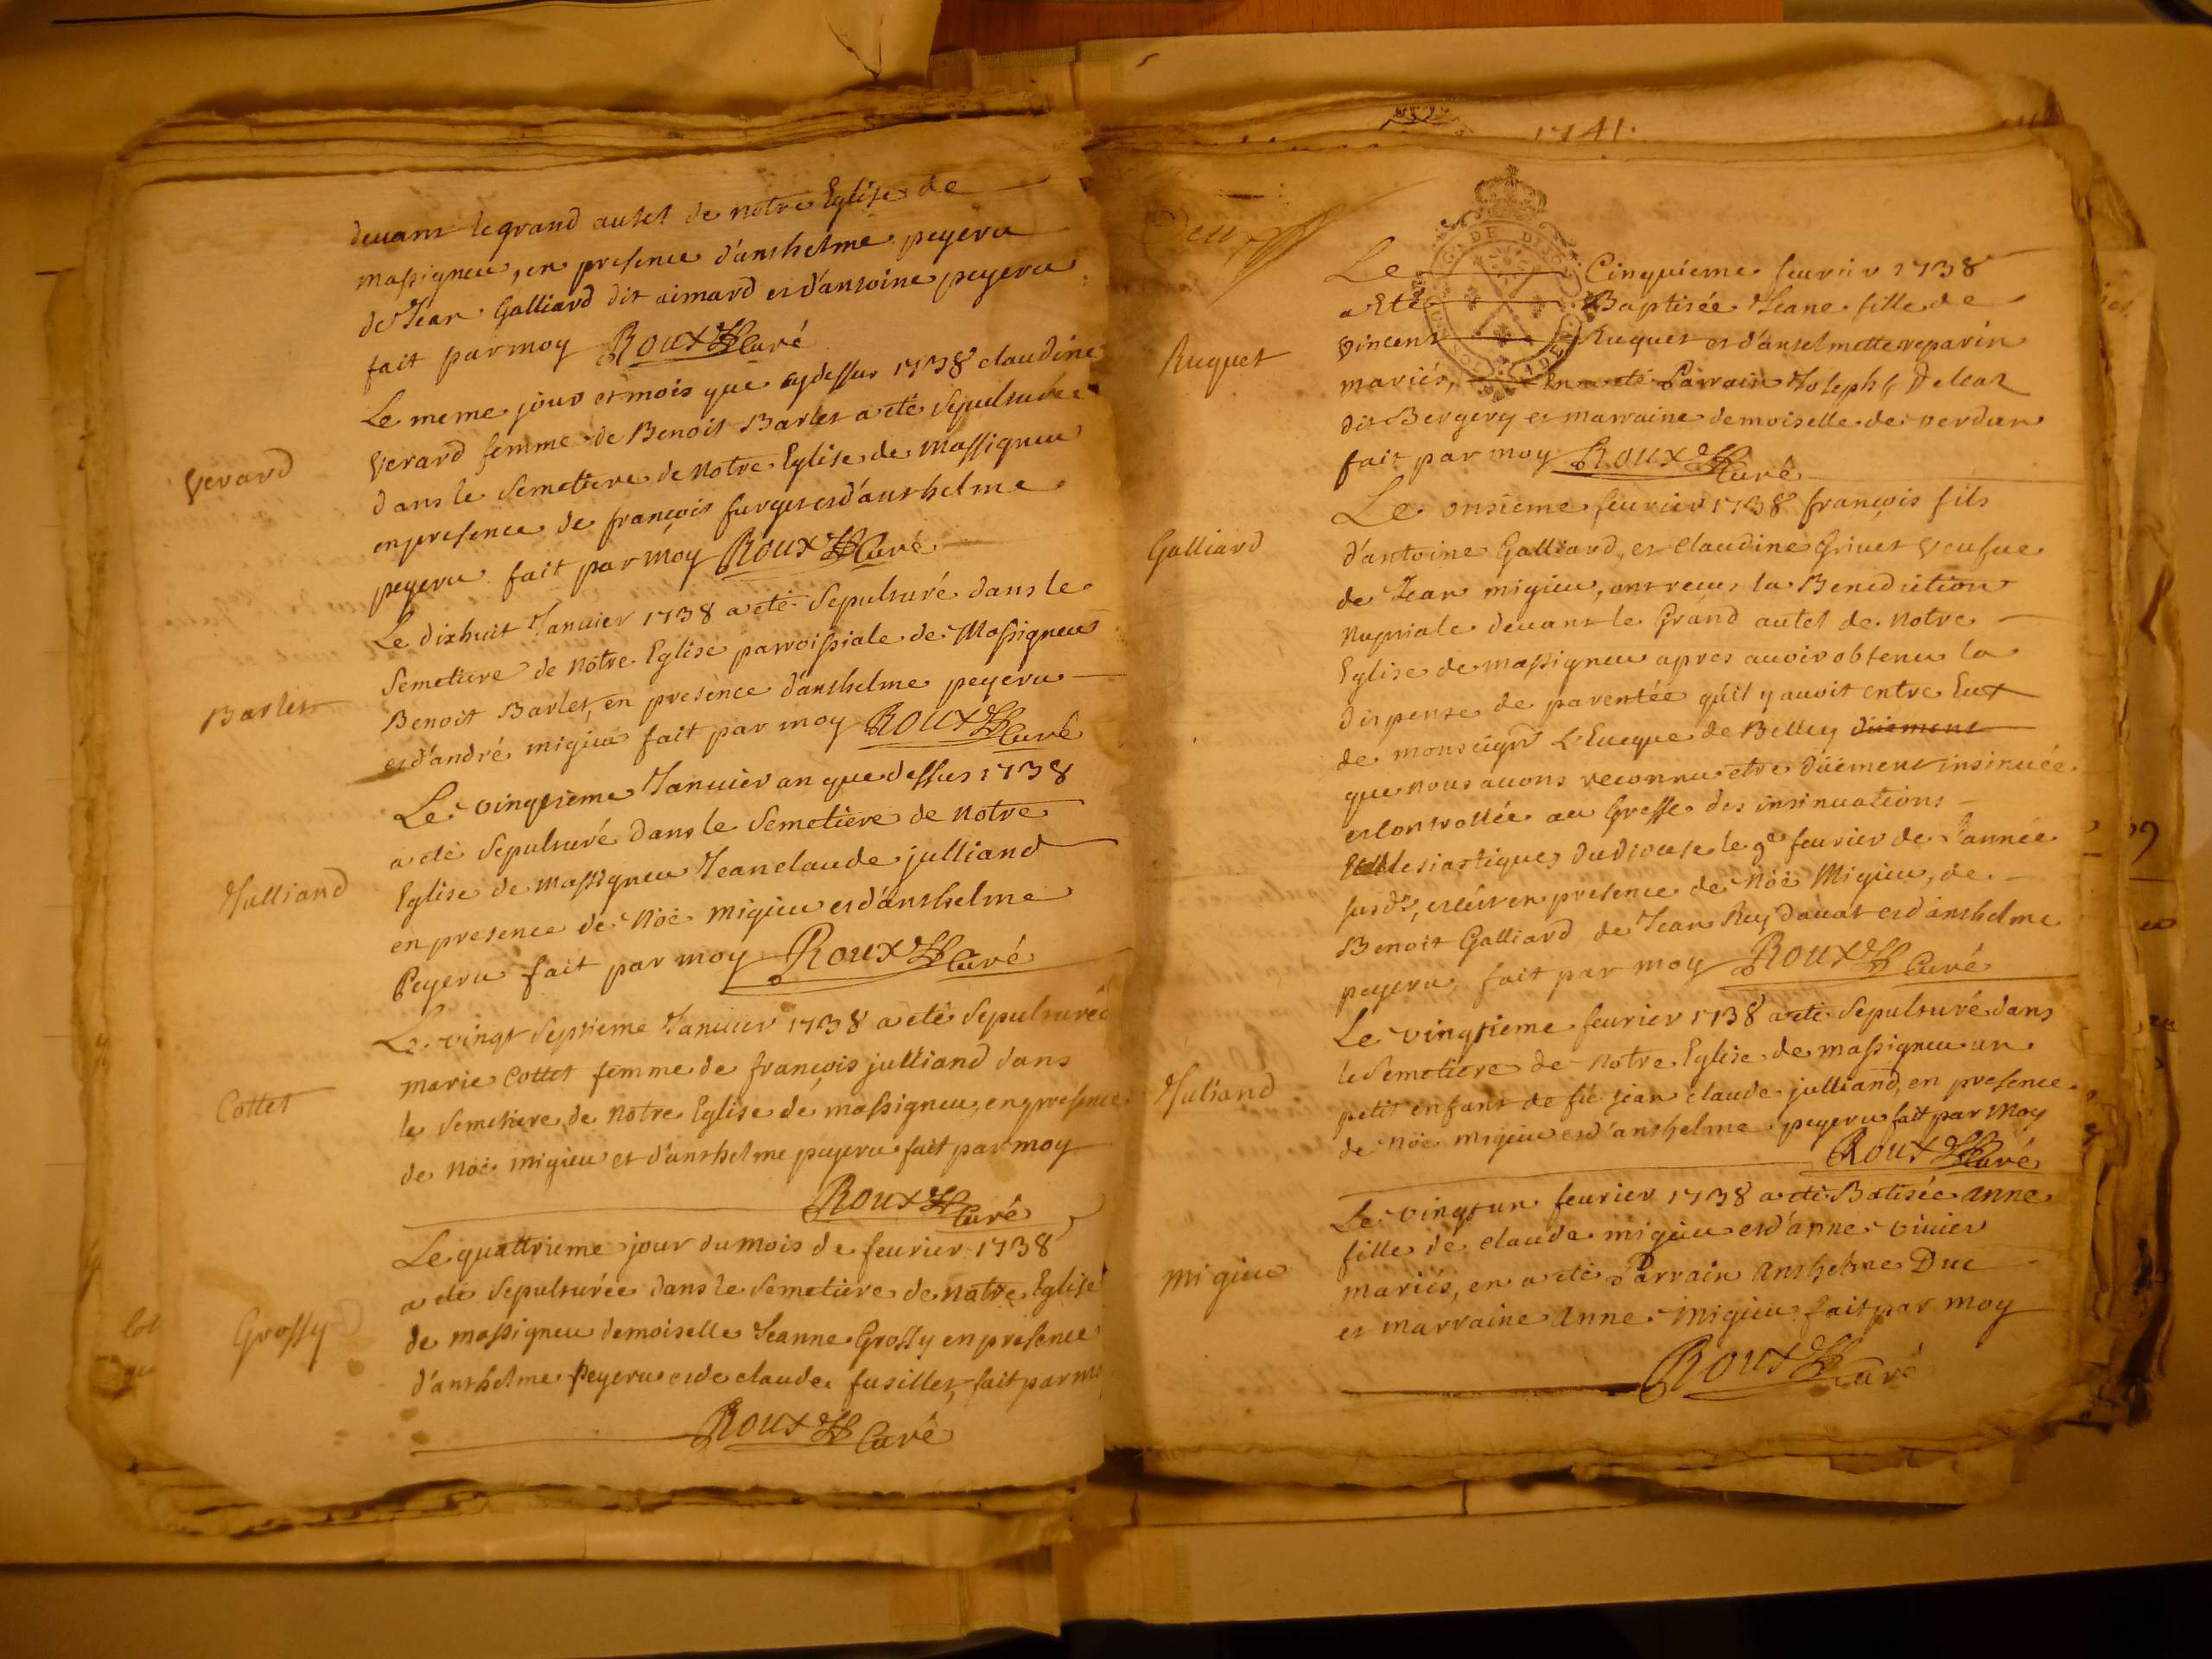 devant le grand autel de notre Eglise de
massigneu, en presence d'anthelme peyeru
de Jean Galliard dit aimard et d'antoine peyeru
fait par moy Roux Curé
Verard
Le meme jour et mois que cy dessus 1738 claudine
Verard femme de Benoit Barlet a eté sepulturée
dans le Semetiere de Notre Eglise de Massigneu
en presence de françois furget et d'anthelme
peyeru fait par moy Roux Curé
Barlet
Le dixhuit Janvier 1738 a eté Sepulturé dans le
Semetiere de Notre Eglise parroissiale de Massigneu
Benoit Barlet, en presence d'anthelme peyeru
et d'andré migieu fait par moy Roux Curé
Julliand
Le vingtieme Janvier an que dessus 1738
a eté Sepulturé dans le Semetiere de Notre
Eglise de massigneu Jean claude julliand
en presence de Noë migieu et d'anthelme
Peyeru fait par moy Roux Curé
Cottet
Le vingt Septieme Janvier 1738 a eté Sepulturée
marie Cottet femme de françois julliand dans
le Semetiere de Notre Eglise de massigneu, en presence
de Noë migieu et d'anthelme peyeru fait par moy
Roux Curé
Grossy
Le quattrieme jour du mois de feurier 1738
a eté Sepulturée dans le Semetiere de Notre Eglise
de massigneu demoiselle Jeanne Grossy en presence
d'anthelme Peyeru et de claude fusillet, fait par mo
Roux Curé
1741.
Deu
G. DE DIJON
Le Cinquieme feurier 1738
a Eté Baptisée Jeane fille de
Ruquet
vincent Ruquet et d'anselmette reparin
mariés, en a eté Parrain Joseph Deleaz
dit Bergery et marraine demoiselle de verdun
fait par moy Roux Curé
Galliard
Le onsieme feurier 1738 françois fils
d'antoine Galliard, et Claudine Grivet Veufue
de Jean migieu, ont reçus la Benediction
Nuptiale devant le Grand autel de Notre
Eglise de massigneu apres auoir obtenu la
dispense de parentée qu'il y auoit entre Eux
de monseigr L'Eueque de Belley düement
que nous auons reconnu etre düement insinuée
et controllée au Greffe des insinuations
Ecclesiastiques du diocese le 9e feurier de l'année
susde, et c'est en presence de Noë Migieu, de
Benoit Galliard de Jean Rey dauat et d'anthelme
peyeru, fait par moy Roux Curé
Juliand
Le vingtieme feurier 1738 a eté Sepulturé dans
le Semetiere de Notre Eglise de massigneu un
petit enfant de fü jean claude julliand, en presence
de Noë migieu et d'anthelme peyeru fait par Moy
Roux Curé
Migieu
Le vingt un feurier 1738 a eté Batisée anne
fille de claude migieu et d'anne vivier
mariés, en a eté Parrain anthelme Duc
et marraine anne migieu fait par moy
Roux Curé